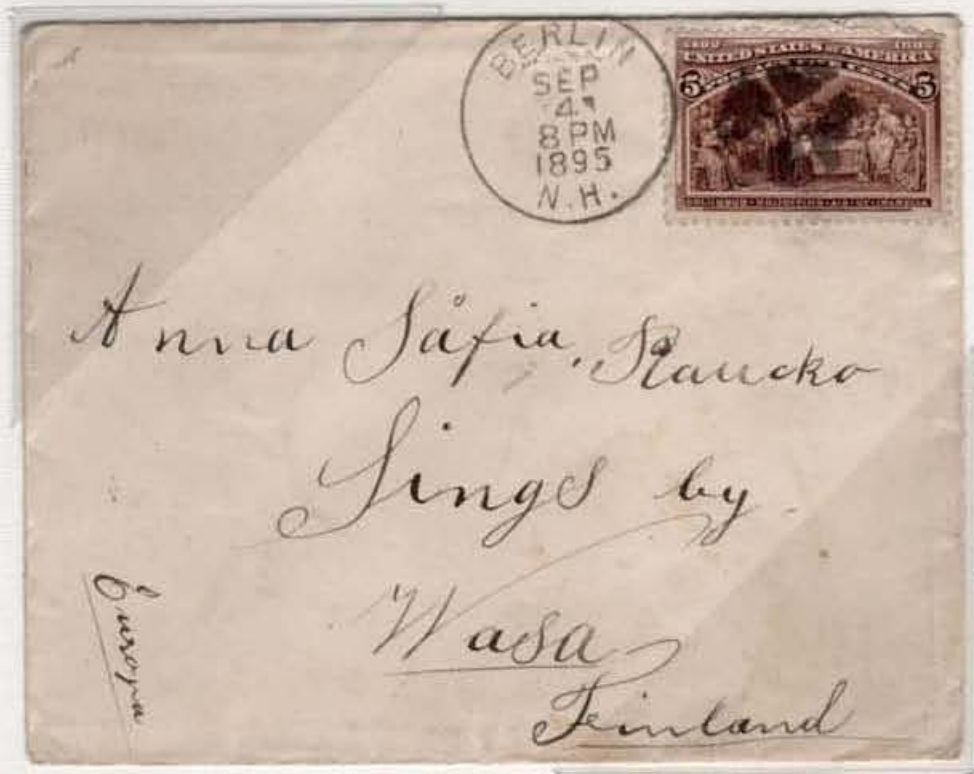 BERLIN
SEP
4
8 PM
1895
N.H.
UNITED STATES OF AMERICA
5 5
Anna Såfia, Raucko
Sings by
Wasa
Finland
Europa